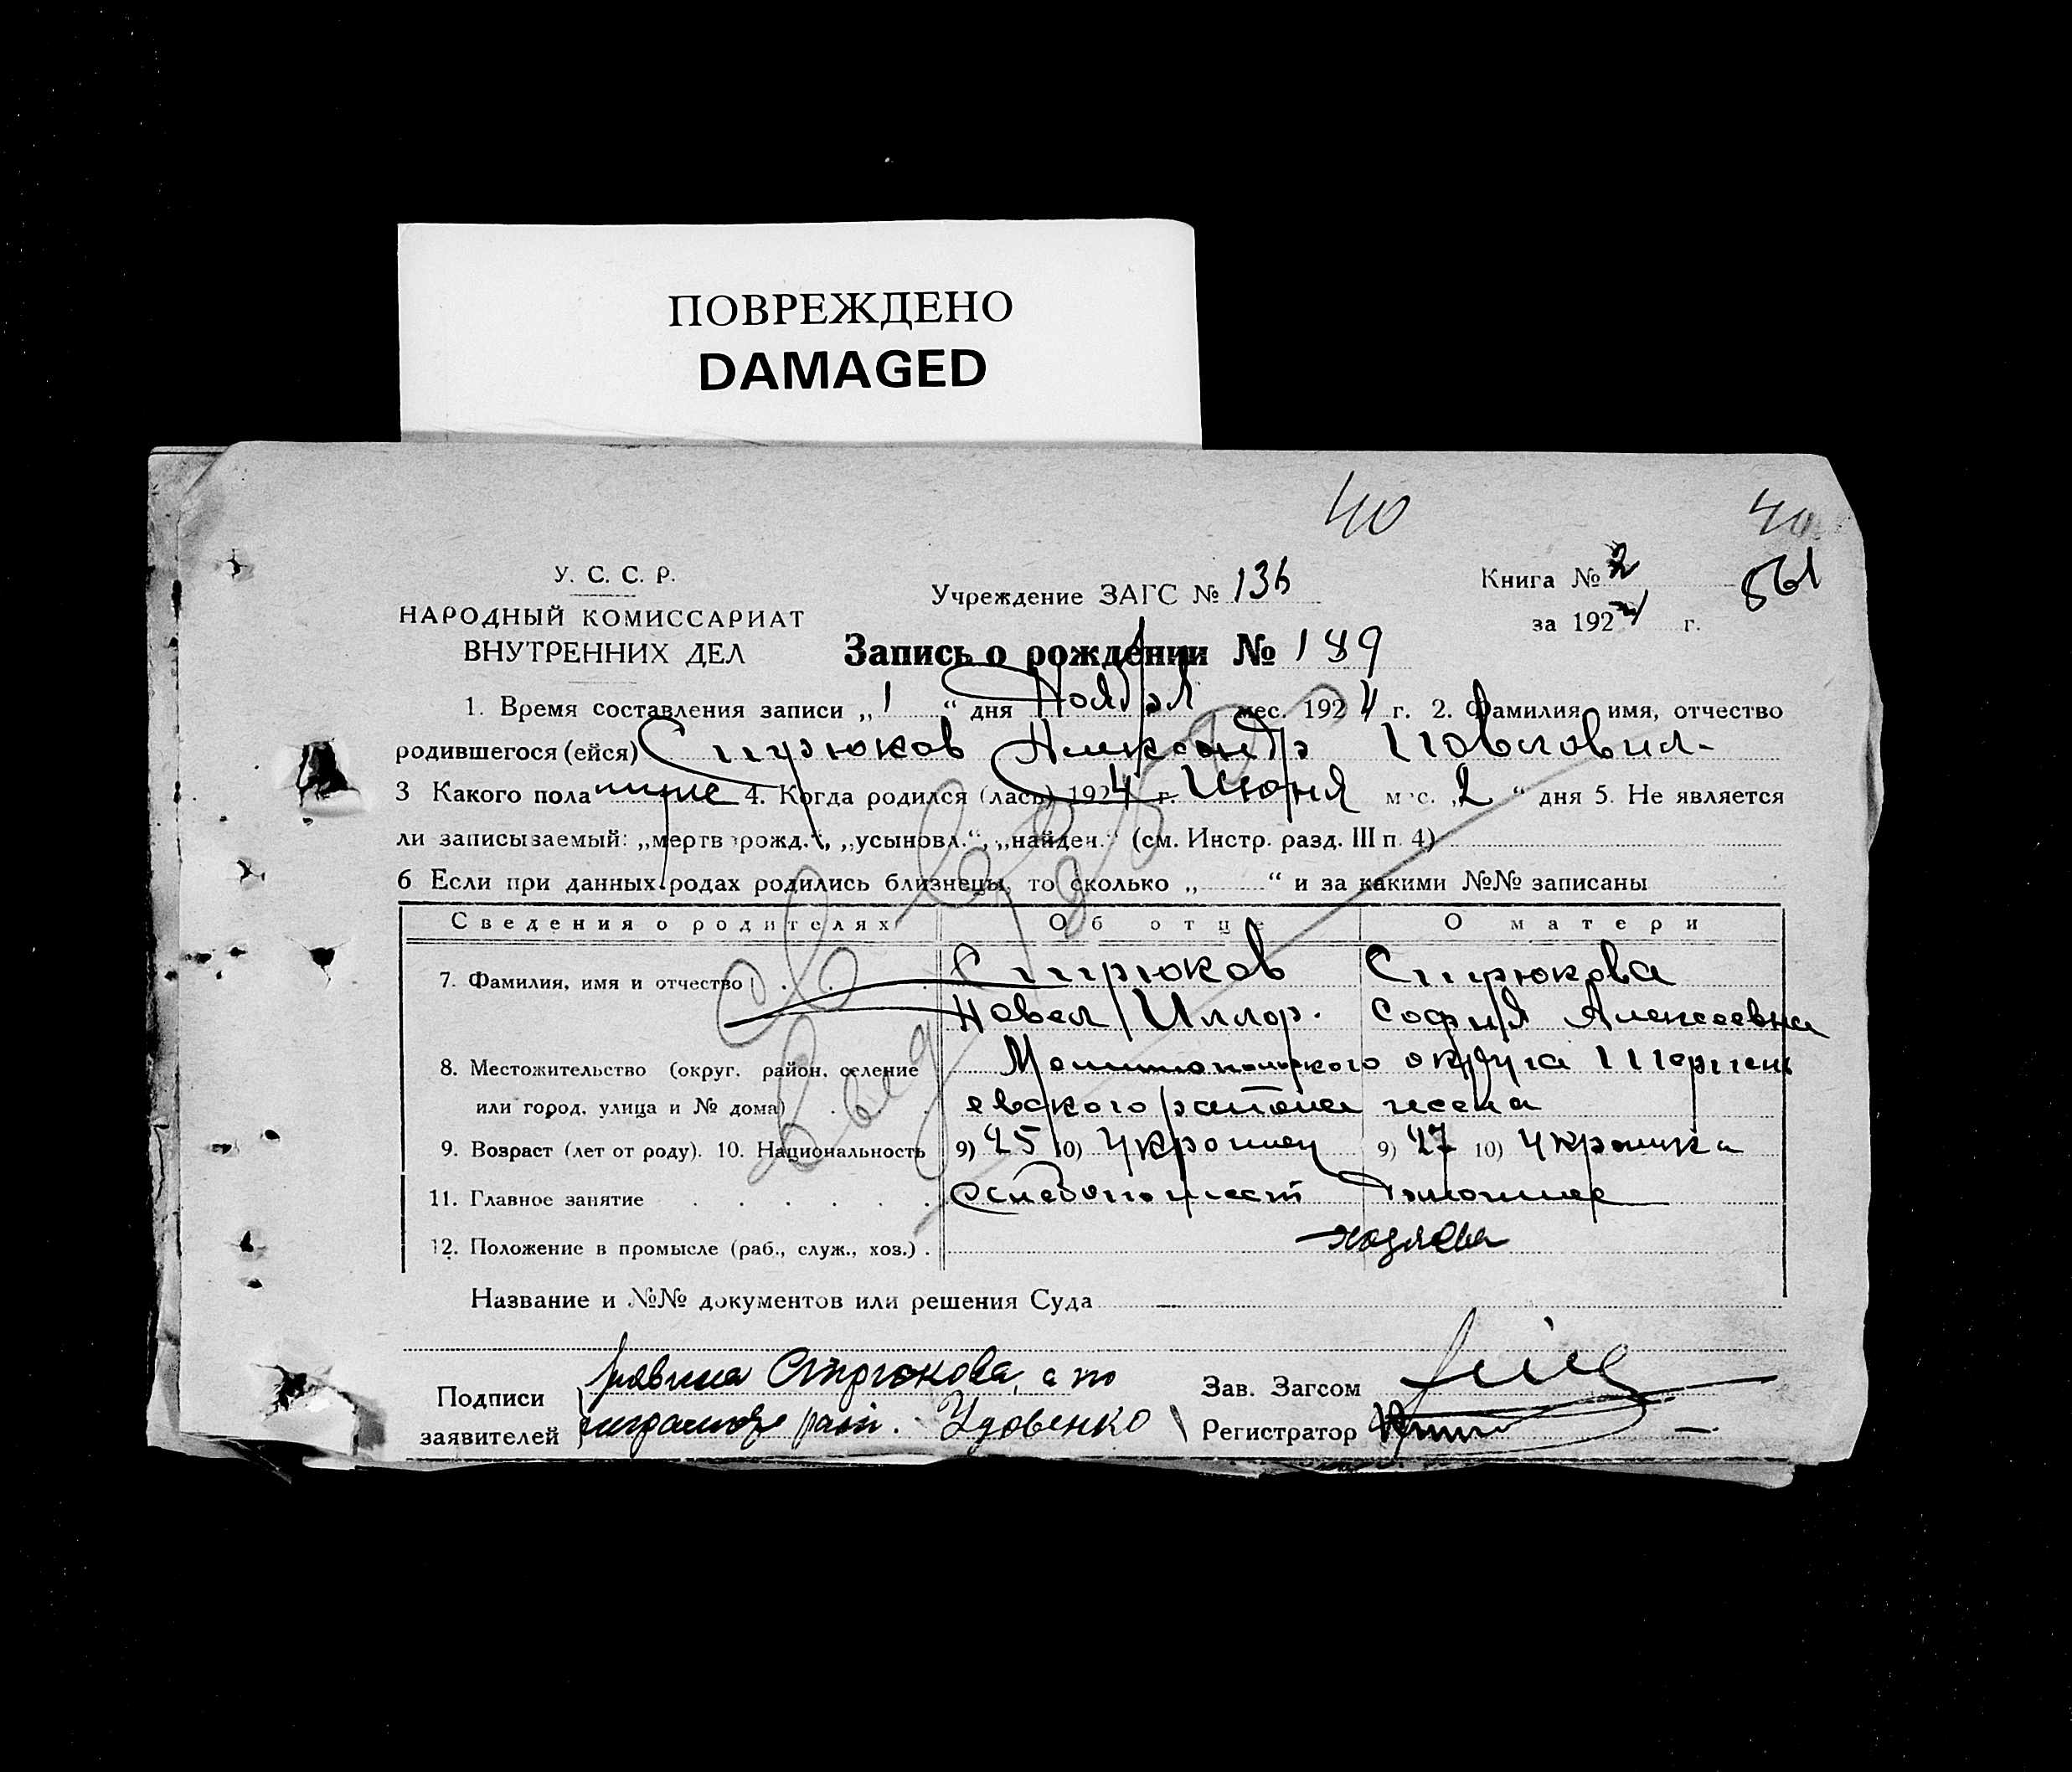 ПОВРЕЖДЕНО
DAMAGED
40
40
У. С. С. Р.
НАРОДНЫЙ КОМИССАРИАТ
ВНУТРЕННИХ ДЕЛ
Учреждение ЗАГС № 136
Книга № 2
561
за 1924 г.
Запись о рождении № 189
1. Время составления записи „1“ дня Ноября мес. 1924 г. 2. Фамилия, имя, отчество
родившегося (ейся) Стрюков Александр Павлович
3 Какого пола муж 4. Когда родился (лась) 1924 г. Июня мес. „2“ дня 5. Не является
ли записываемый: „мертворожд.“, „усыновл.“, „найден.“ (см. Инстр. разд. III п. 4)
6 Если при данных родах родились близнецы, то сколько „ “ и за какими №№ записаны
Сведения о родителях Об отце О матери
7. Фамилия, имя и отчество Стрюков Стрюкова
Павел Иллар. София Алексеевна
8. Местожительство (округ, район, селение Мелитопольского округа
или город, улица и № дома) района
9. Возраст (лет от роду). 10. Национальность 9) 25 10) Украинец 9) 27 10) Украинка
11. Главное занятие Домашнее
12. Положение в промысле (раб., служ., хоз.) хозяйка
Название и №№ документов или решения Суда
Подписи Стрюкова, а по
заявителей Удовенко
Зав. Загсом
Регистратор